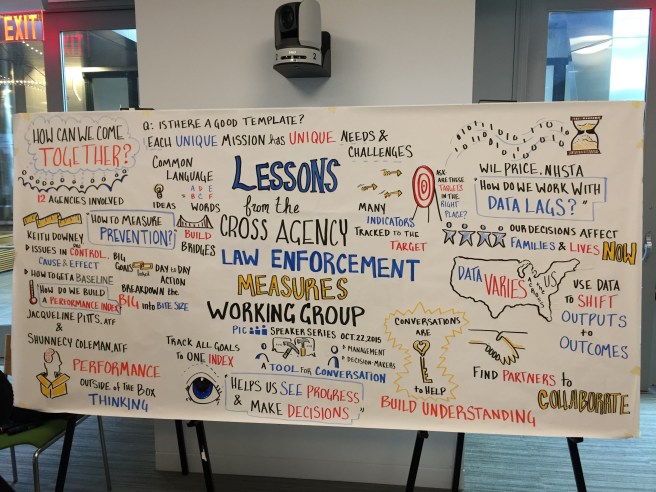 EXIT
HOW CAN WE COME
TOGETHER?
12 AGENCIES INVOLVED
KEITH DOWNEY, DHS
HOW TO MEASURE
PREVENTION?
ISSUES in CONTROL,
CAUSE & EFFECT
HOW TO GET A BASELINE
HOW DO WE BUILD
A PERFORMANCE INDEX
BIG
GOALS
DAY to DAY
ACTION
BREAKDOWN the
BIG into BITE SIZE
JACQUELINE PITTS, ATF
&
SHUNNECY COLEMAN, ATF
PERFORMANCE
OUTSIDE OF THE BOX
THINKING
Q: IS THERE A GOOD TEMPLATE?
EACH UNIQUE MISSION has UNIQUE NEEDS &
CHALLENGES
COMMON
LANGUAGE
IDEAS
A D E
B C F
WORDS
BUILD
BRIDGES
LESSONS
from the
CROSS AGENCY
LAW ENFORCEMENT
MEASURES
WORKING GROUP
PIC SPEAKER SERIES OCT. 22, 2015
MANAGEMENT
DECISION-MAKERS
A TOOL FOR CONVERSATION
TRACK ALL GOALS
TO ONE INDEX
"HELPS US SEE PROGRESS
& MAKE DECISIONS"
MANY
INDICATORS
TRACKED TO THE
TARGET
ASK
ARE THOSE
TARGETS
IN THE
RIGHT
PLACE?
WIL PRICE, NHSTA
"HOW DO WE WORK WITH
DATA LAGS?"
OUR DECISIONS AFFECT
FAMILIES & LIVES NOW
DATA
VARIES
US
USE DATA
TO SHIFT
OUTPUTS
to
OUTCOMES
CONVERSATIONS
ARE
KEY
to HELP
BUILD UNDERSTANDING
FIND PARTNERS to
COLLABORATE